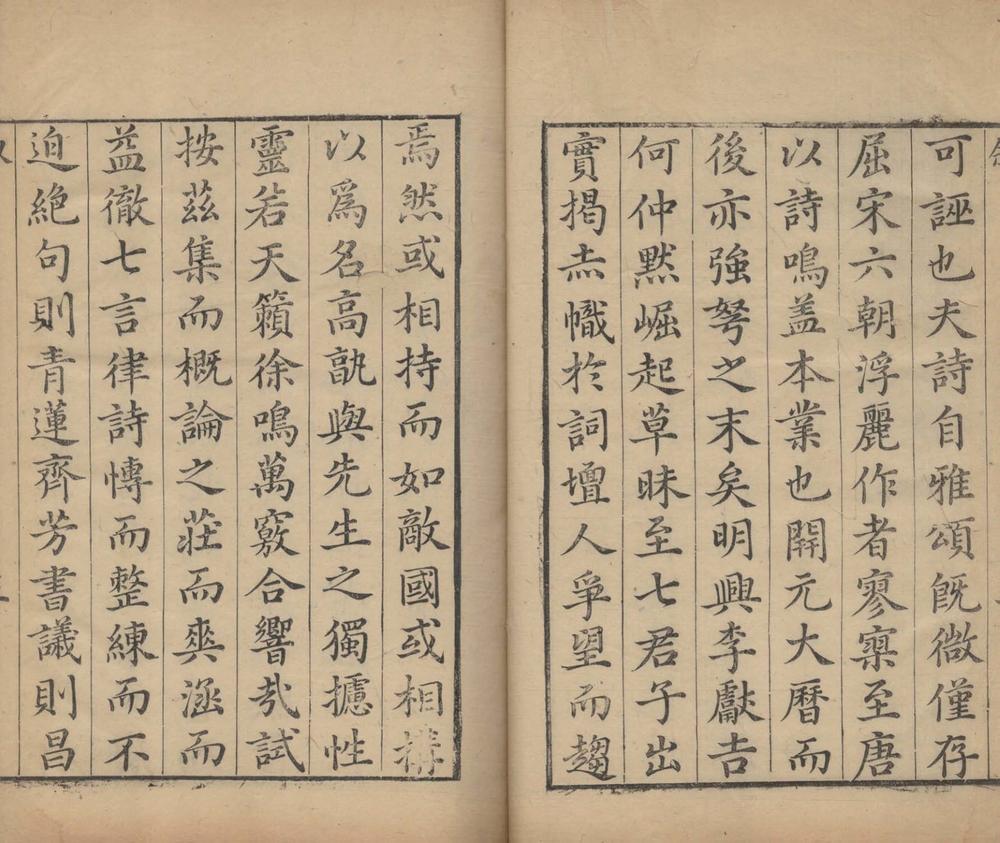 可誣也夫詩自雅頌旣微僅存
屈宋六朝浮麗作者寥寥至唐
以詩鳴盖本業也開元大曆而
後亦強弩之末矣明興李獻吉
何仲黙崛起草昧至七君子出
實揭赤幟於詞壇人爭望而趨
焉然或相持而如敵國或相搆
以爲名高孰與先生之獨攄性
靈若天籟徐鳴萬竅合響哉試
按茲集而概論之莊而爽涵而
益徹七言律詩慱而整練而不
迫絶句則青蓮齊芳書議則昌